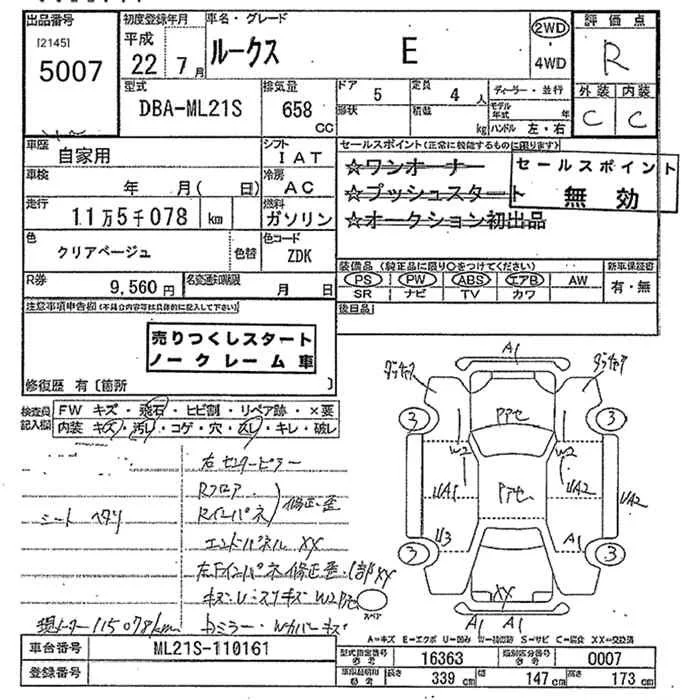 出品番号
[2145]
5007
初度登録年月
平成
22年 7月
車名・グレード
ルークス E
2WD
・
4WD
評価点
R
外装 内装
C C
型式
DBA-ML21S
排気量
658
CC
ドア 5
形状
定員 4 人
積載 kg
ディーラー・並行
モデル年式 年
ハンドル 左・右
車歴
自家用
シフト
IAT
車検
年 月( 日)
冷房
AC
走行
11万5千078 km
燃料
ガソリン
色
クリアベージュ
色替
色コード
ZDK
R券
9,560 円
名変期限
月 日
セールスポイント(正常に機能するものに限ります)
☆ワンオーナー
☆プッシュスタート
☆オークション初出品
セールスポイント
無効
装備品(純正品に限り○をつけてください)
PS PW ABS エアB AW
SR ナビ TV カワ
新車保証書
有・無
後日品
注意事項申告欄(不具合内容等は具体的に記入して下さい)
売りつくしスタート
ノークレーム車
修復歴 有〔箇所 〕
検査員記入欄
FW キズ・飛石・ヒビ割・リペア跡・×要
内装・キズ・汚レ・コゲ・穴・スレ・キレ・破レ
右センターピラー
Rフロア
Rインパネ
修正・歪
シート ヘタリ
エンドパネル XX
現メーター 115078km
A1
3 3
アアセ
W2 W2
UA1 アアセ UA2 UA2
U3 A1
3 3
XX
A1 A1
スペア
A=キズ E=エクボ U=凹み W=補修跡 S=サビ C=腐食 XX=交換済
車台番号
ML21S-110161
登録番号
型式指定番号
参考
16363
類別区分番号
参考
0007
長さ 339 cm 幅 147 cm 高さ 173 cm